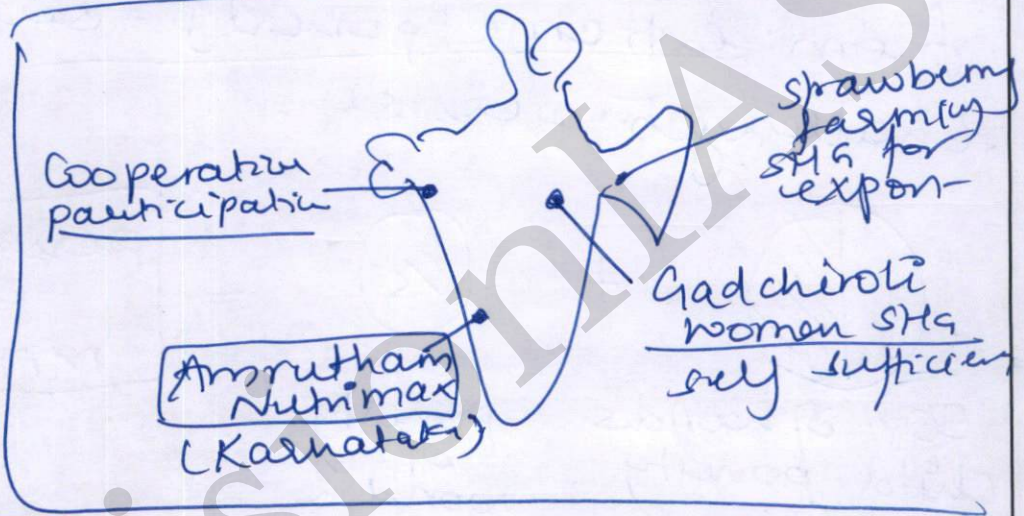 Cooperation
participation
strawberry
farming
SHG for
export
Gadchiroli
women SHG
self sufficiency
Amrutham
Nutrimax
(Karnataka)
VisionIAS